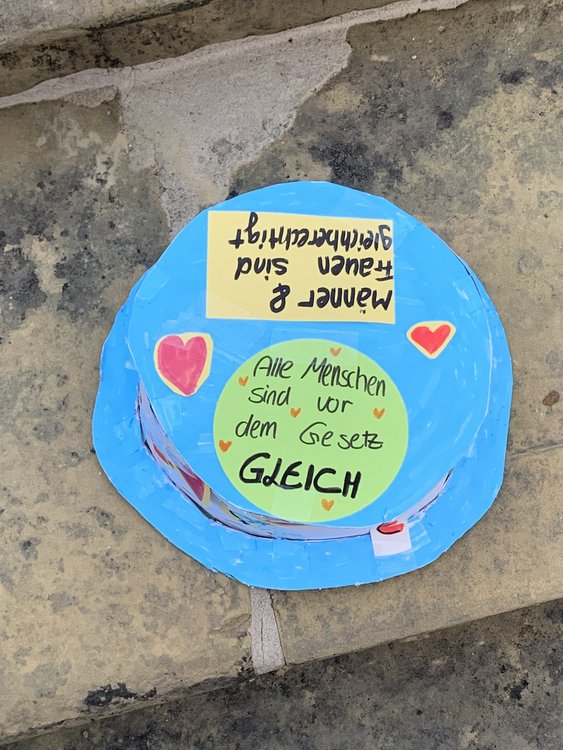 Männer &
Frauen sind
gleichberechtigt
Alle Menschen
sind vor
dem Gesetz
GLEICH